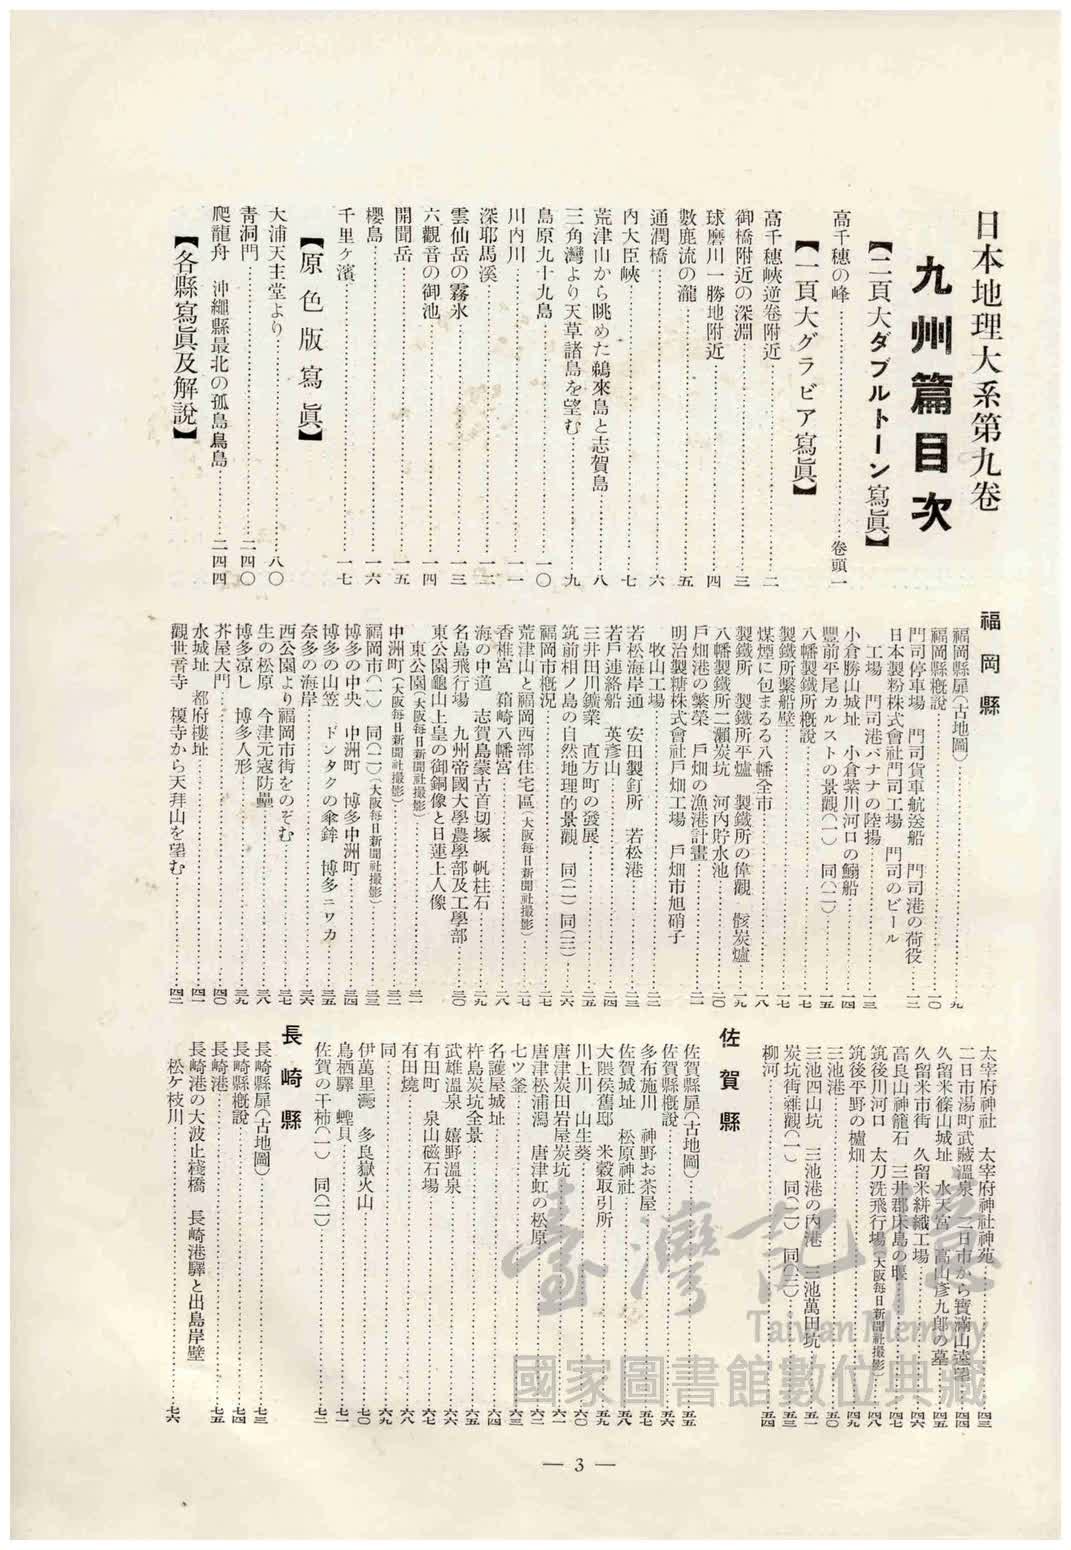 日本地理大系第九卷
九州篇目次
【二頁大ダブルトーン寫眞】
高千穗の峰………卷頭一
【一頁大グラビア寫眞】
高千穗峽逆卷附近………二
御橋附近の深淵………三
球磨川一勝地附近………四
數鹿流の瀧………五
通潤橋………六
內大臣峽………七
荒津山から眺めた鵜來島と志賀島………八
三角灣より天草諸島を望む………九
島原九十九島………一〇
川內川………一一
深耶馬溪………一二
雲仙岳の霧氷………一三
六觀音の御池………一四
開聞岳………一五
櫻島………一六
千里ヶ濱………一七
【原色版寫眞】
大浦天主堂より………八〇
靑洞門………二四〇
爬龍舟　沖繩縣最北の孤島鳥島………二四四
【各縣寫眞及解說】
福岡縣
福岡縣扉(古地圖)………九
福岡縣槪說………一〇
門司停車場　門司貨車航送船　門司港の荷役………一二
日本製粉株式會社門司工場　門司のビール
工場　門司港バナナの陸揚………一三
小倉勝山城址　小倉紫川河口の鰯船………一四
豐前平尾カルストの景觀(一)　同(二)………一五
八幡製鐵所槪說………一七
製鐵所繫船壁………一七
煤煙に包まるる八幡全市………一八
製鐵所　製鐵所平爐　製鐵所の偉觀　骸炭爐………一九
八幡製鐵所二瀨炭坑　河內貯水池………二〇
戶畑港の繁榮　戶畑の漁港計畫………二一
明治製糖株式會社戶畑工場　戶畑市旭硝子
牧山工場………二二
若松海岸通　安田製釘所　若松港………二三
若戶連絡船　英彥山………二四
三井田川鑛業　直方町の發展………二五
筑前相ノ島の自然地理的景觀　同(二)　同(三)………二六
福岡市槪況………二七
荒津山と福岡西部住宅區(大阪每日新聞社撮影)………二七
香椎宮　箱崎八幡宮………二八
海の中道　志賀島蒙古首切塚　帆柱石………二九
名島飛行場　九州帝國大學農學部及工學部………三〇
東公園龜山上皇の御銅像と日蓮上人像
東公園(大阪每日新聞社撮影)………三一
中洲町(大阪每日新聞社撮影)………三二
福岡市(一)　同(二)(大阪每日新聞社撮影)………三三
博多の中央　中洲町　博多中洲町………三四
博多の山笠　ドンタクの傘鉾　博多ニワカ………三五
奈多の海岸………三六
西公園より福岡市街をのぞむ………三七
生の松原　今津元寇防壘………三八
博多凉し　博多人形………三九
芥屋大門………四〇
水城址　都府樓址………四一
觀世音寺　榎寺から天拜山を望む………四二
太宰府神社　太宰府神社神苑………四三
二日市湯町武藏溫泉　二日市から寶滿山遠望………四四
久留米篠山城址　水天宮　高山彥九郞の墓………四五
久留米市街　久留米絣織工場………四六
高良山神籠石　三井郡床島の堰………四七
筑後川河口　太刀洗飛行場(大阪每日新聞社撮影)………四八
筑後平野の櫨畑………四九
三池港………五〇
三池四山坑　三池港の內港　三池萬田坑………五一
炭坑街雜觀(一)　同(二)　同(三)………五三
柳河………五四
佐賀縣
佐賀縣扉(古地圖)………五五
佐賀縣槪說………五六
多布施川　神野お茶屋………五七
佐賀城址　松原神社………五八
大隈侯舊邸　米穀取引所………五九
川上川　山生葵………六〇
唐津炭田岩屋炭坑………六一
唐津松浦潟　唐津虹の松原………六二
七ツ釜………六三
名護屋城址………六四
杵島炭坑全景………六五
武雄溫泉　嬉野溫泉………六六
有田町　泉山磁石場………六七
有田燒………六八
同………六九
伊萬里灣　多良嶽火山………七〇
鳥栖驛　蟶貝………七一
佐賀の干柿(一)　同(二)………七二
長崎縣
長崎縣扉(古地圖)………七三
長崎縣槪說………七四
長崎港………七五
長崎港の大波止棧橋　長崎港驛と出島岸壁
松ケ枝川………七六
臺灣記憶
Taiwan Memory
國家圖書館數位典藏
— 3 —